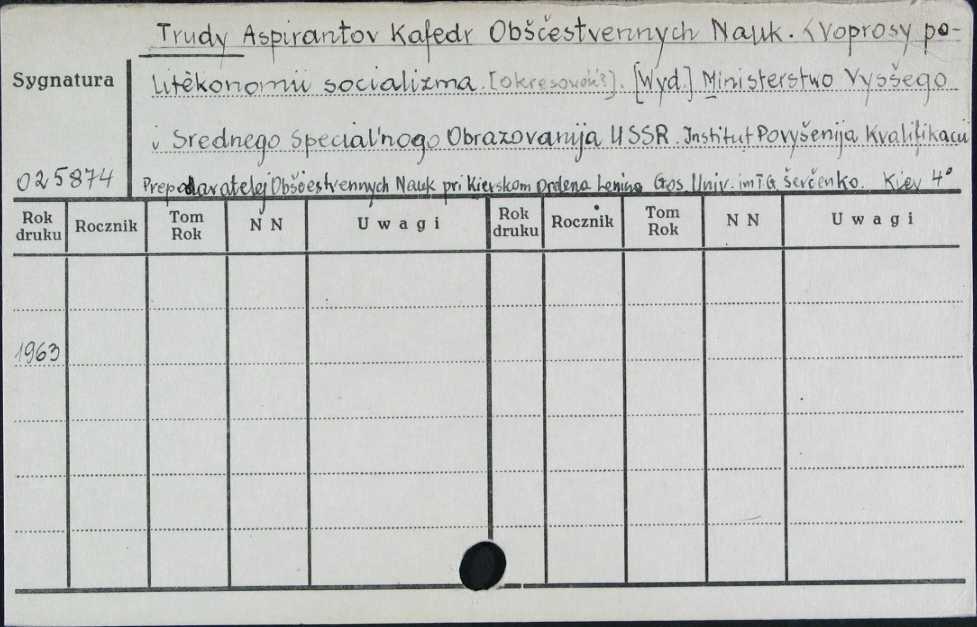 Trudy Aspirantov Kafedr Obščestvennych Nauk. <Voprosy po-
Sygnatura
litėkonomii socializma. [Wyd.] Ministerstwo Vysšego
i Srednego Special'nogo Obrazovanija USSR. Institut Povyšenija Kvalifikacii
025874
Prepodavatelej Obščestvennych Nauk pri Kievskom Ordena Lenina Gos. Univ. im T.G. Ševčenko. Kiev 4°
Rok druku Rocznik Tom Rok N N Uwagi Rok druku Rocznik Tom Rok N N Uwagi
1963